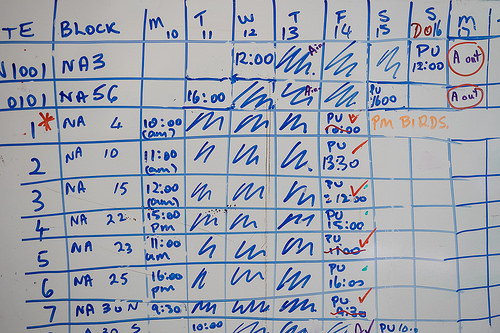 TE BLOCK M 10 T 11 W 12 T 13 F 14 S 15 S 16 M
1001 NA3 12:00 Ain DO PU 12:00 A out
0101 NA56 16:00 Ain PU 1600 A out
1* NA 4 10:00 (am) PU 10:00 PM BIRDS.
2 NA 10 11:00 (am) PU 13:30
3 NA 15 12:00 (am) PU 12:00
4 NA 22 15:00 pm PU 15:00
5 NA 23 11:00 am PU 11:00
6 NA 25 16:00 pm PU 16:00
7 NA 30 N 9:30 PU 9:30
10:00 PU